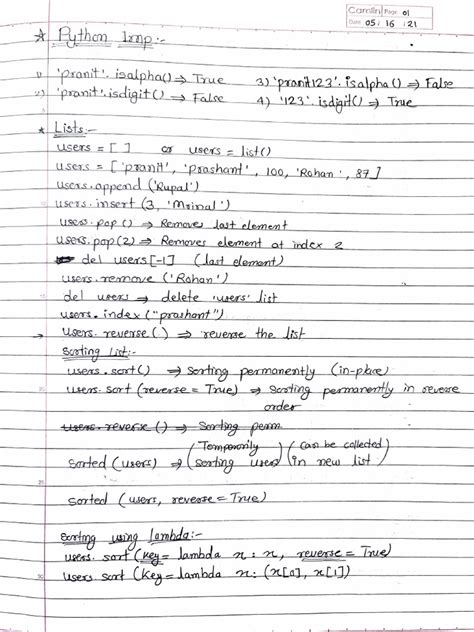 Camlin Page 01
Date 05 / 16 / 21
★ Python Imp:-
1) 'pranit'.isalpha() ⇒ True 3) 'pranit123'.isalpha() ⇒ False
2) 'pranit'.isdigit() ⇒ False 4) '123'.isdigit() ⇒ True
★ Lists:-
users = [ ] or users = list()
users = ['pranit', 'prashant', 100, 'Rohan', 87]
users.append ('Rupal')
users.insert (3, 'Mrinal')
users.pop() ⇒ Remove last element
users.pop(2) ⇒ Removes element at index 2
del users[-1] (last element)
users.remove ('Rohan')
del users ⇒ delete 'users' list
users.index ("prashant")
→ users.reverse() ⇒ reverse the list
Sorting List:-
users.sort() ⇒ Sorting permanently (in-place)
users.sort (reverse = True) ⇒ Sorting permanently in reverse
order
users.reverse () ⇒ Sorting perm
Sorted (users) ⇒ (Temporarily sorting users) (Can be collected in new list)
Sorted (users, reverse = True)
Sorting using Lambda:-
users.sort (key = lambda x : x, reverse = True)
users.sort (key = lambda x: (x[0], x[1])